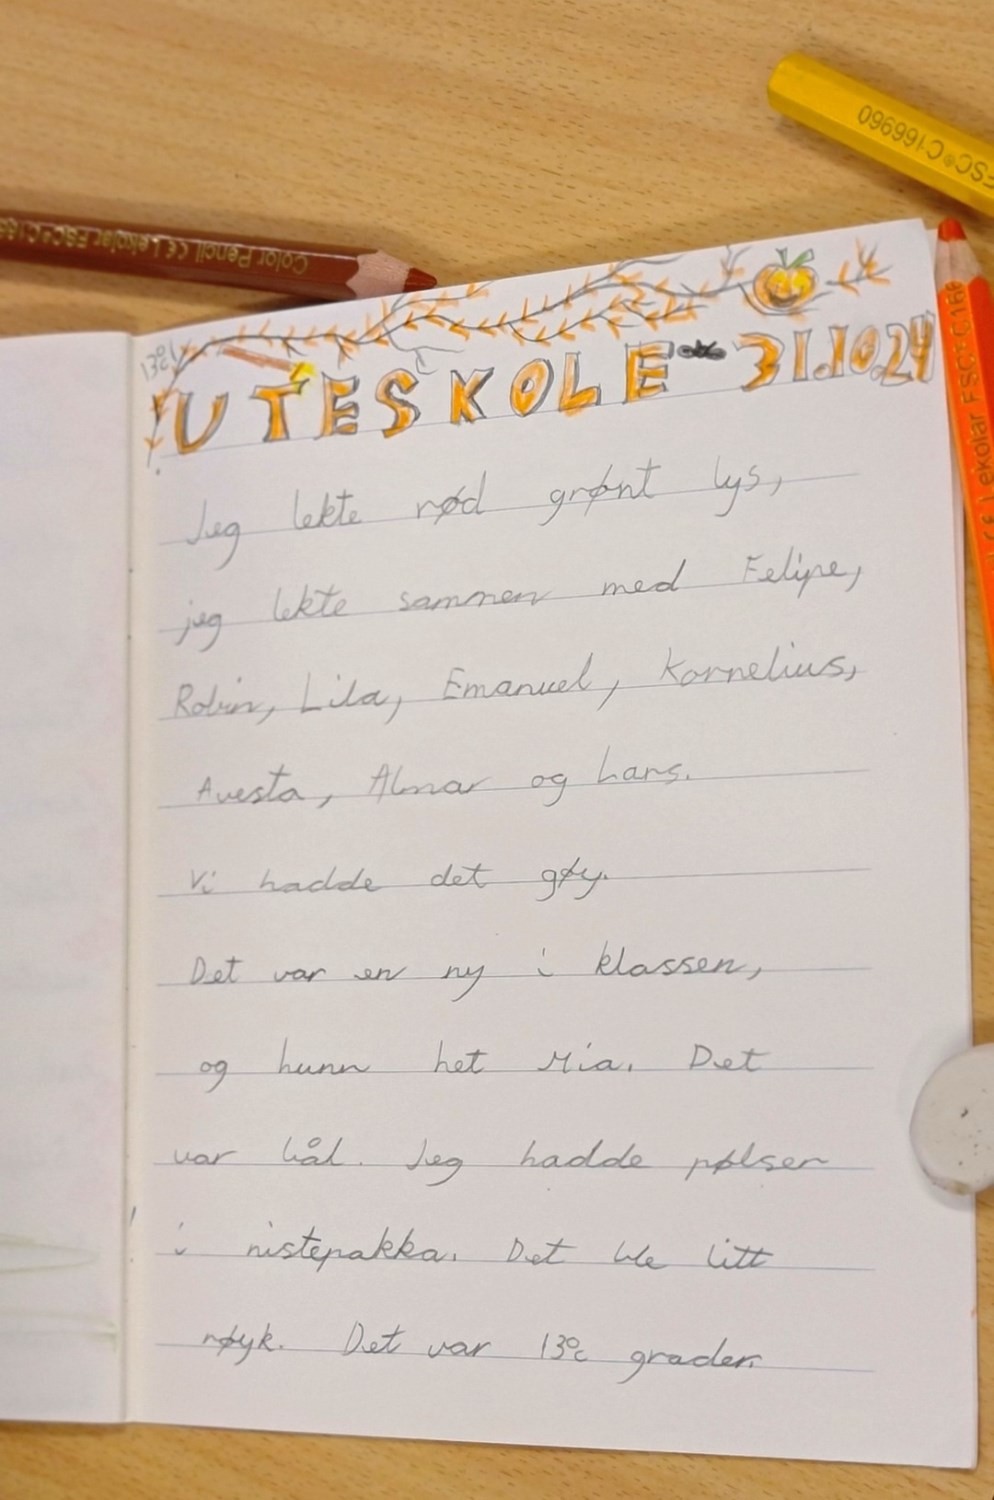 FSC®C166960
Color Pencil CE Lekolar FSC® C166
13°C
UTESKOLE - 31.10.24
Jeg lekte rød grønt lys,
jeg lekte sammen med Felipe,
Robin, Lila, Emanuel, Kornelius,
Avesta, Almar og hans.
Vi hadde det gøy.
Det var en ny i klassen,
og hunn het Mia. Det
var bål. Jeg hadde pølser
i nistepakka. Det ble litt
røyk. Det var 13°C grader.
CE Lekolar FSC® C166